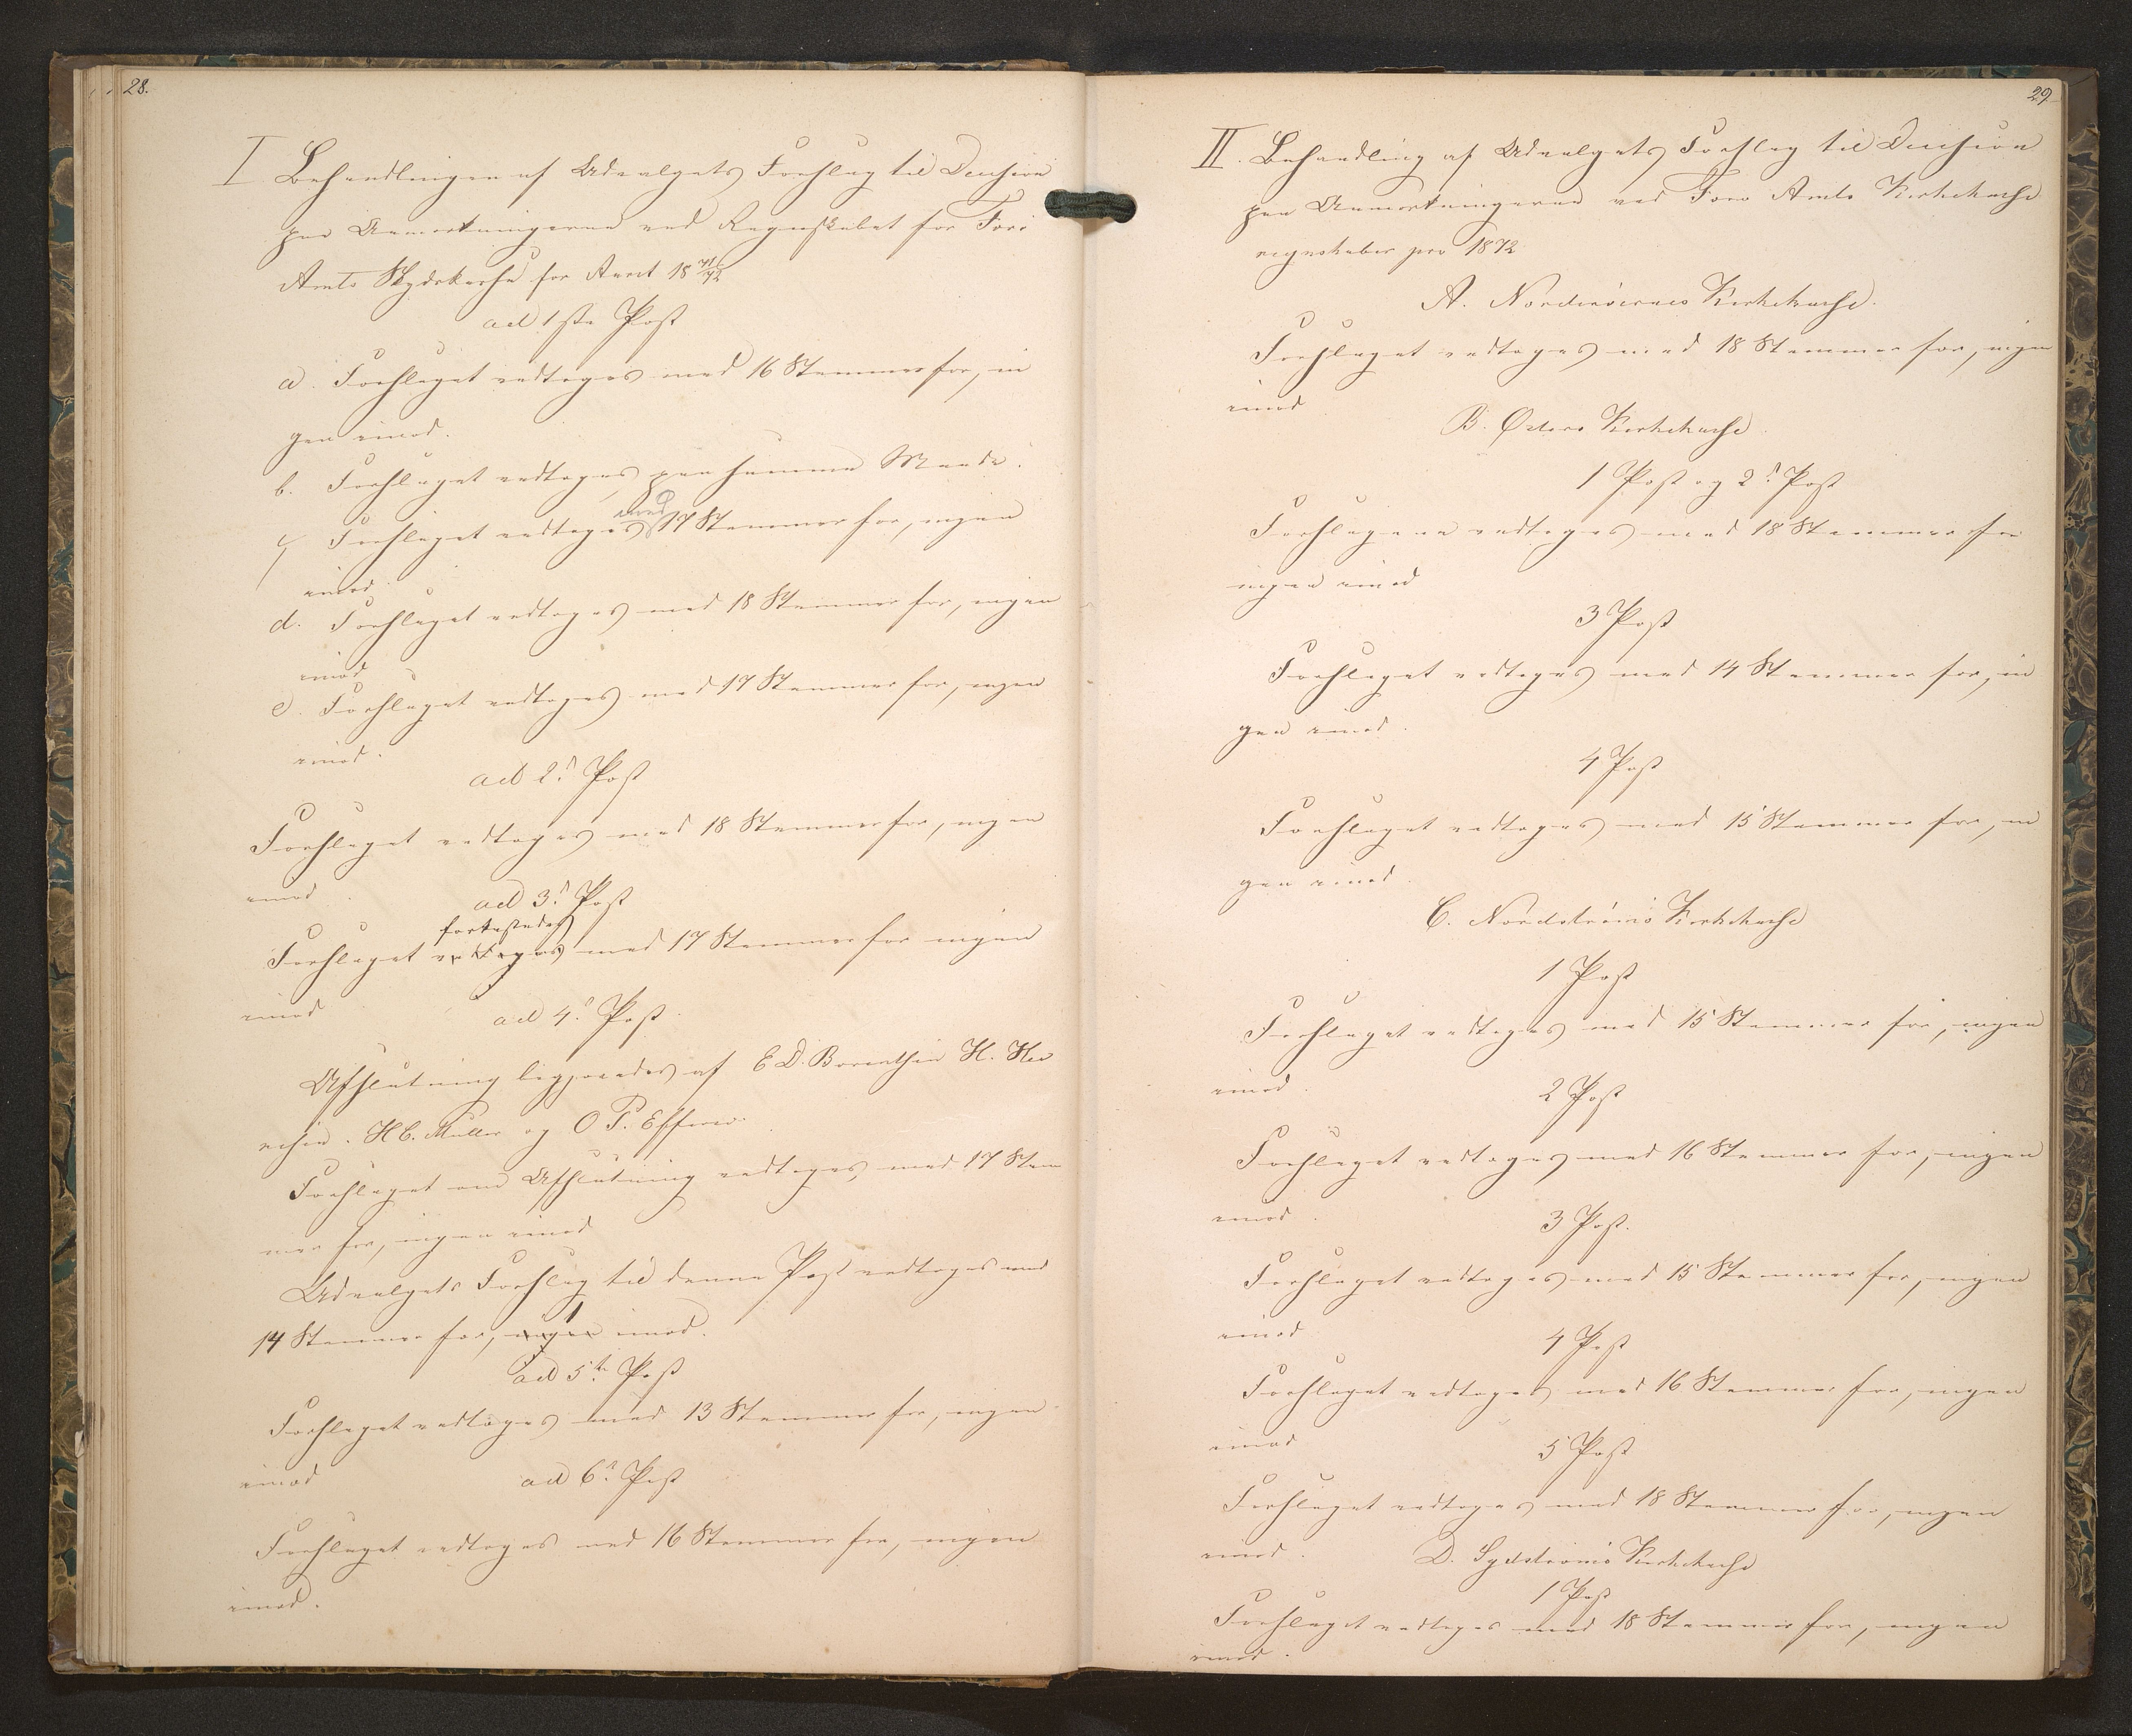 28.
I Behandlingen af Udvalgets Forslag til Decision
paa Anmærkningerne ved Regnskabet for Færø
Amts Skydskasse for Aaret 18 71/72
ad 1ste Post
a. Forslaget vedtoges med 16 Stemmer for, in
gen imod.
b. Forslaget vedtoges paa samme Maade.
c. Forslaget vedtoges med 17 Stemmer for, ingen
imod.
d. Forslaget vedtoges med 18 Stemmer for, ingen
imod
e. Forslaget vedtoges med 17 Stemmer for, ingen
imod.
ad 2d Post
Forslaget vedtoges med 18 Stemmer for, ingen
imod.
ad 3d Post
forkastedes
Forslaget vedtoges med 17 Stemmer for ingen
imod
ad 4d Post
Afslutning begjæredes af E D. Bærentsen H. Hen
riksen. H C. Müller og O P. Effersø.
Forslaget om Afslutning vedtoges med 17 Stem
mer for, ingen imod
Udvalgets Forslag til denne Post vedtoges med
1
14 Stemmer for, ingen imod.
ad 5te Post
Forslaget vedtoges med 13 Stemmer for, ingen
imod
ad 6te Post
Forslaget vedtoges med 16 Stemmer for, ingen
imod.
29
II. Behandling af Udvalgets Forslag til Decision
paa Anmærkningerne ved Færø Amts Kirkekasse
regnskaber pro 1872
A. Norderøernes Kirkekasse.
Forslaget vedtoges med 18 Stemmer for, ingen
imod
B. Østerø Kirkekasse.
1 Post og 2d Post
Forslagene vedtoges med 18 Stemmer for
ingen imod
3 Post
Forslaget vedtoges med 14 Stemmer for, in
gen imod.
4 Post
Forslaget vedtoges med 15 Stemmer for, in
gen imod.
C. Nordstrømø Kirkekasse
1 Post
Forslaget vedtoges med 15 Stemmer for, ingen
imod.
2 Post
Forslaget vedtoges med 16 Stemmer for, ingen
imod.
3 Post.
Forslaget vedtoges med 15 Stemmer for, ingen
imod
4 Post
Forslaget vedtoges med 16 Stemmer for, ingen
imod
5 Post
Forslaget vedtoges med 18 Stemmer for, ingen
imod.
D. Sydstrømø Kirkekasse
1 Post
Forslaget vedtoges med 18 Stemmer for, ingen
imod.